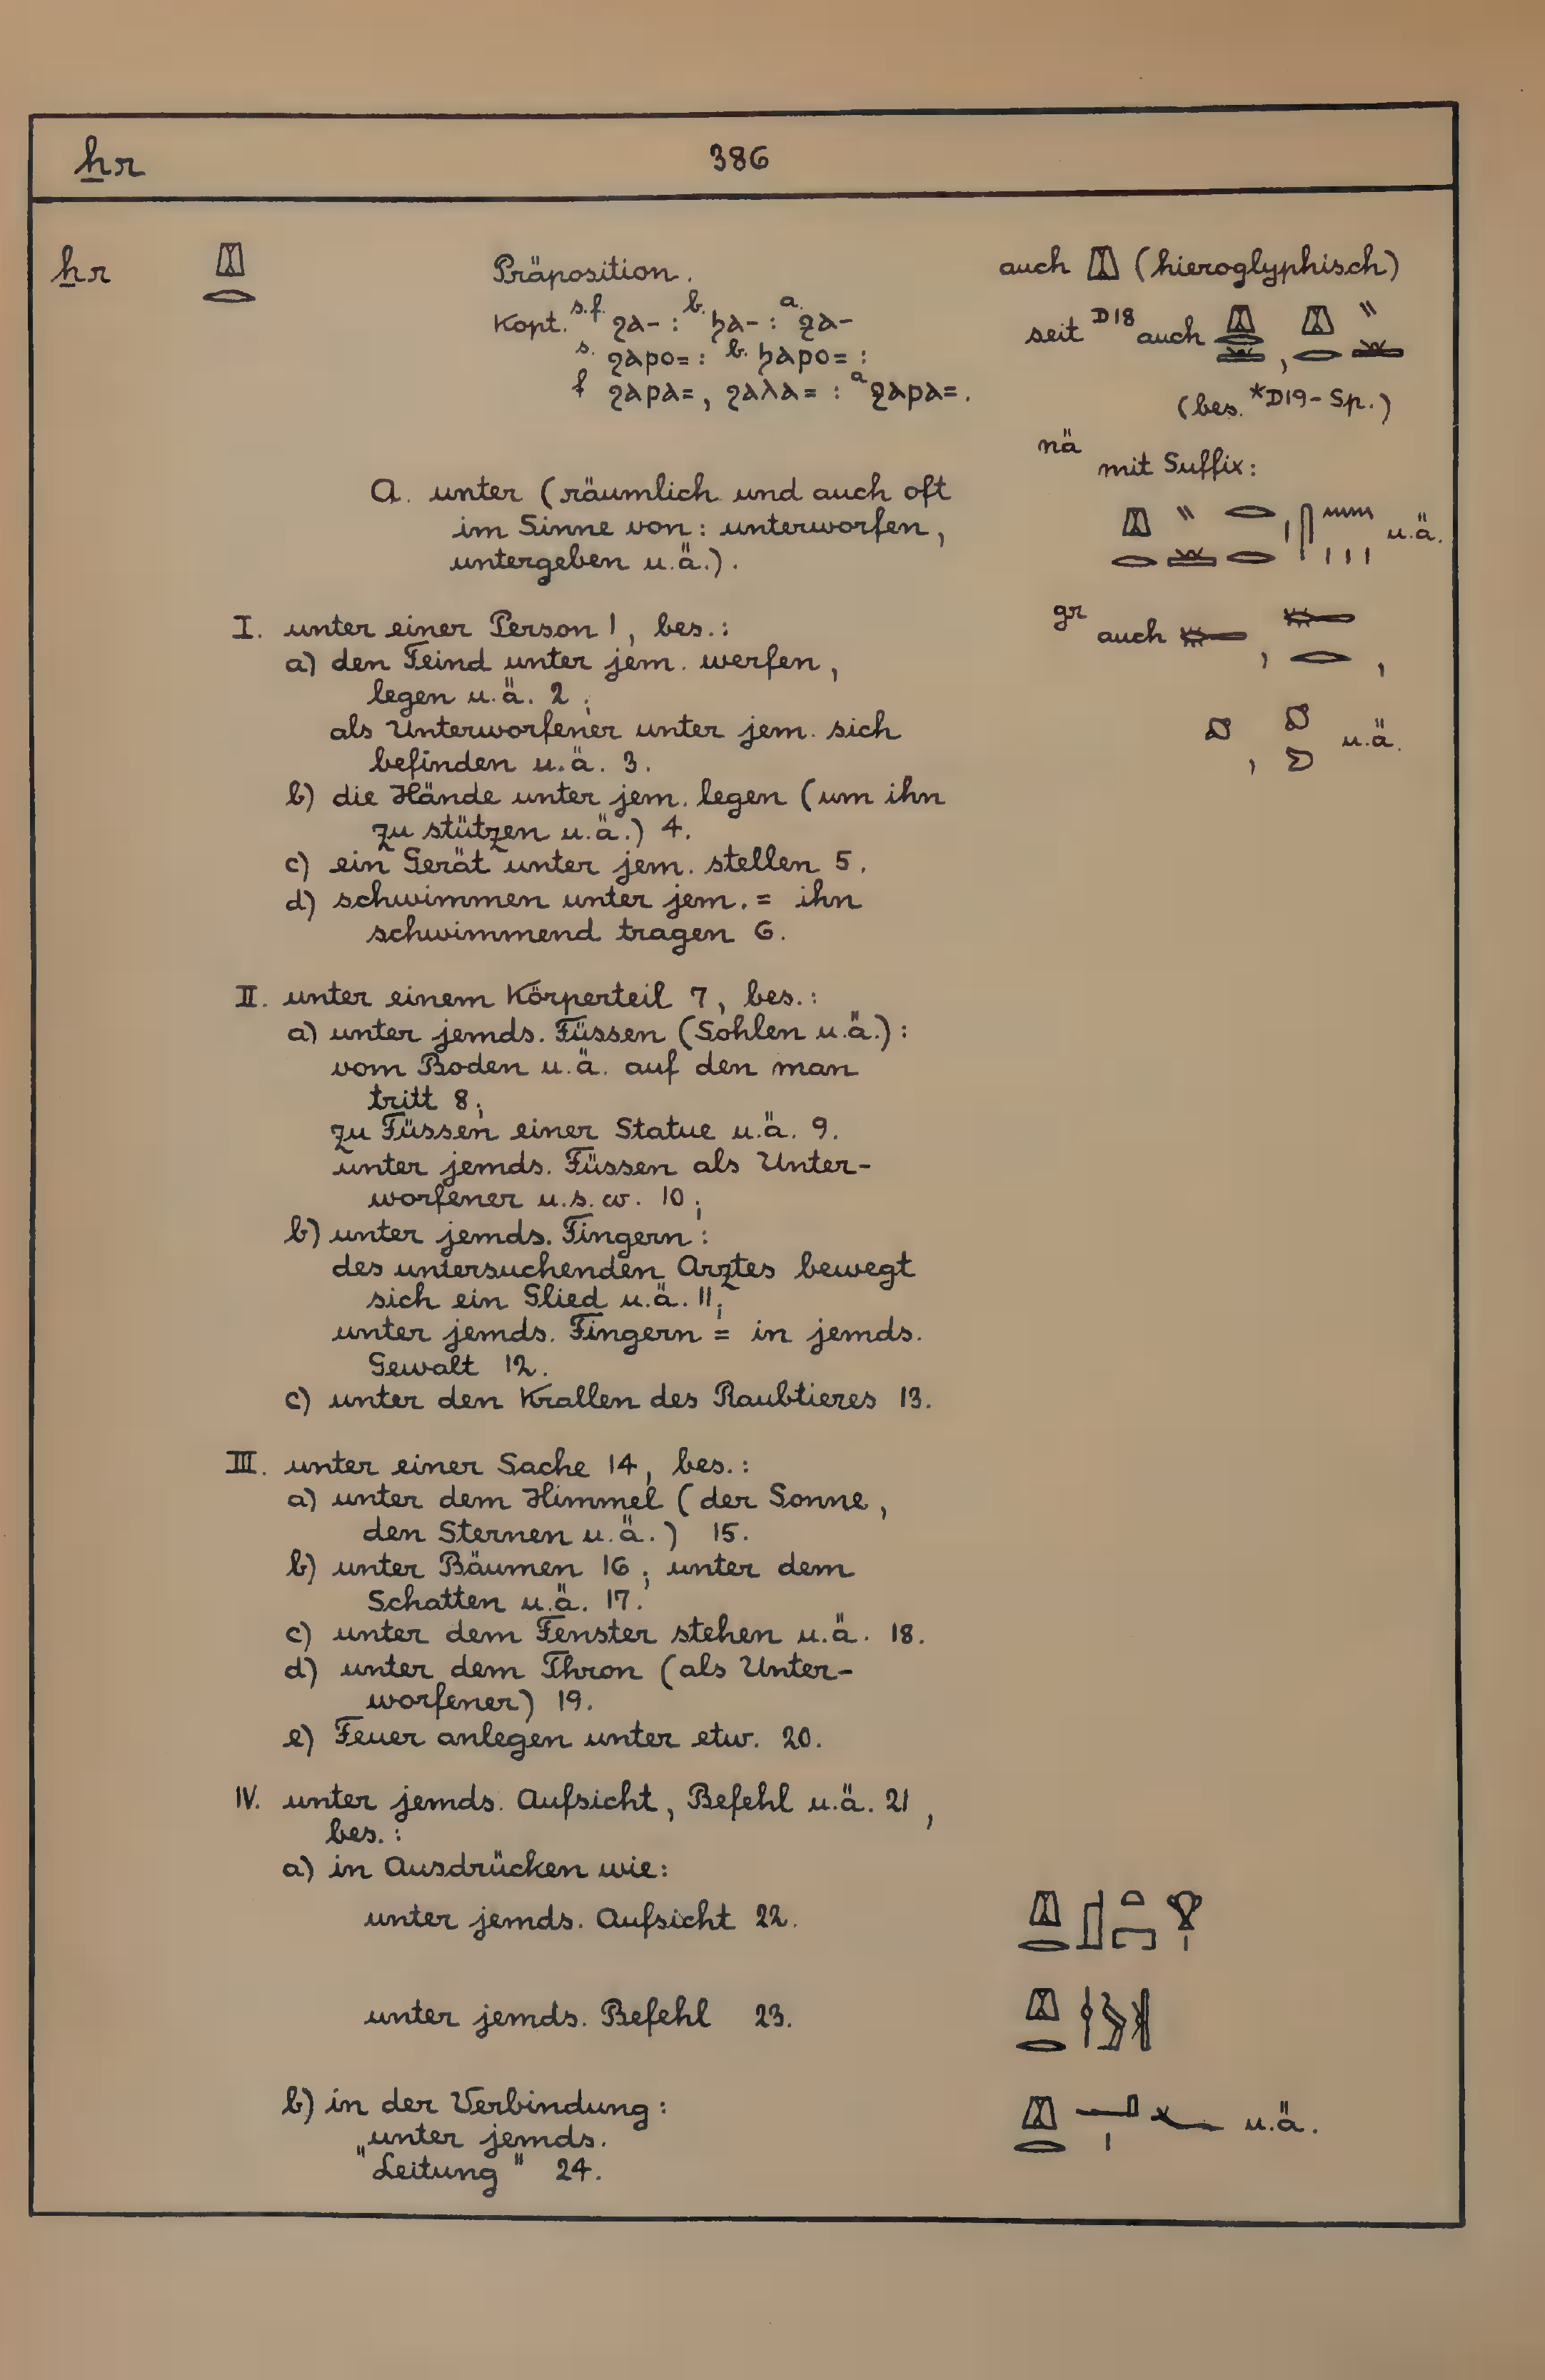 ẖr 386
ẖr 𓌨𓂋 Präposition. auch 𓌨 (hieroglyphisch)
Kopt. s.f. ϩⲁ- : b. ϧⲁ- : a. ϩⲁ- seit D18 auch
s. ϩⲁⲣⲟ= : b. ϧⲁⲣⲟ= :
f ϩⲁⲣⲁ=, ϩⲁⲗⲁ= : a ϩⲁⲣⲁ=. (bes. *D19-Sp.)
nä mit Suffix:
A. unter (räumlich und auch oft
im Sinne von: unterworfen, u.ä.
untergeben u.ä.).
I. unter einer Person 1, bes.: gr auch
a) den Feind unter jem. werfen,
legen u.ä. 2;
als Unterworfener unter jem. sich u.ä.
befinden u.ä. 3.
b) die Hände unter jem. legen (um ihn
zu stützen u.ä.) 4.
c) ein Gerät unter jem. stellen 5.
d) schwimmen unter jem. = ihn
schwimmend tragen 6.
II. unter einem Körperteil 7, bes.:
a) unter jemds. Füssen (Sohlen u.ä.):
vom Boden u.ä. auf den man
tritt 8;
zu Füssen einer Statue u.ä. 9.
unter jemds. Füssen als Unter-
worfener u.s.w. 10;
b) unter jemds. Fingern:
des untersuchenden Arztes bewegt
sich ein Glied u.ä. 11;
unter jemds. Fingern = in jemds.
Gewalt 12.
c) unter den Krallen des Raubtieres 13.
III. unter einer Sache 14, bes.:
a) unter dem Himmel (der Sonne,
den Sternen u.ä.) 15.
b) unter Bäumen 16; unter dem
Schatten u.ä. 17.
c) unter dem Fenster stehen u.ä. 18.
d) unter dem Thron (als Unter-
worfener) 19.
e) Feuer anlegen unter etw. 20.
IV. unter jemds. Aufsicht, Befehl u.ä. 21,
bes.:
a) in Ausdrücken wie:
unter jemds. Aufsicht 22.
unter jemds. Befehl 23.
b) in der Verbindung: u.ä.
„unter jemds.
Leitung" 24.